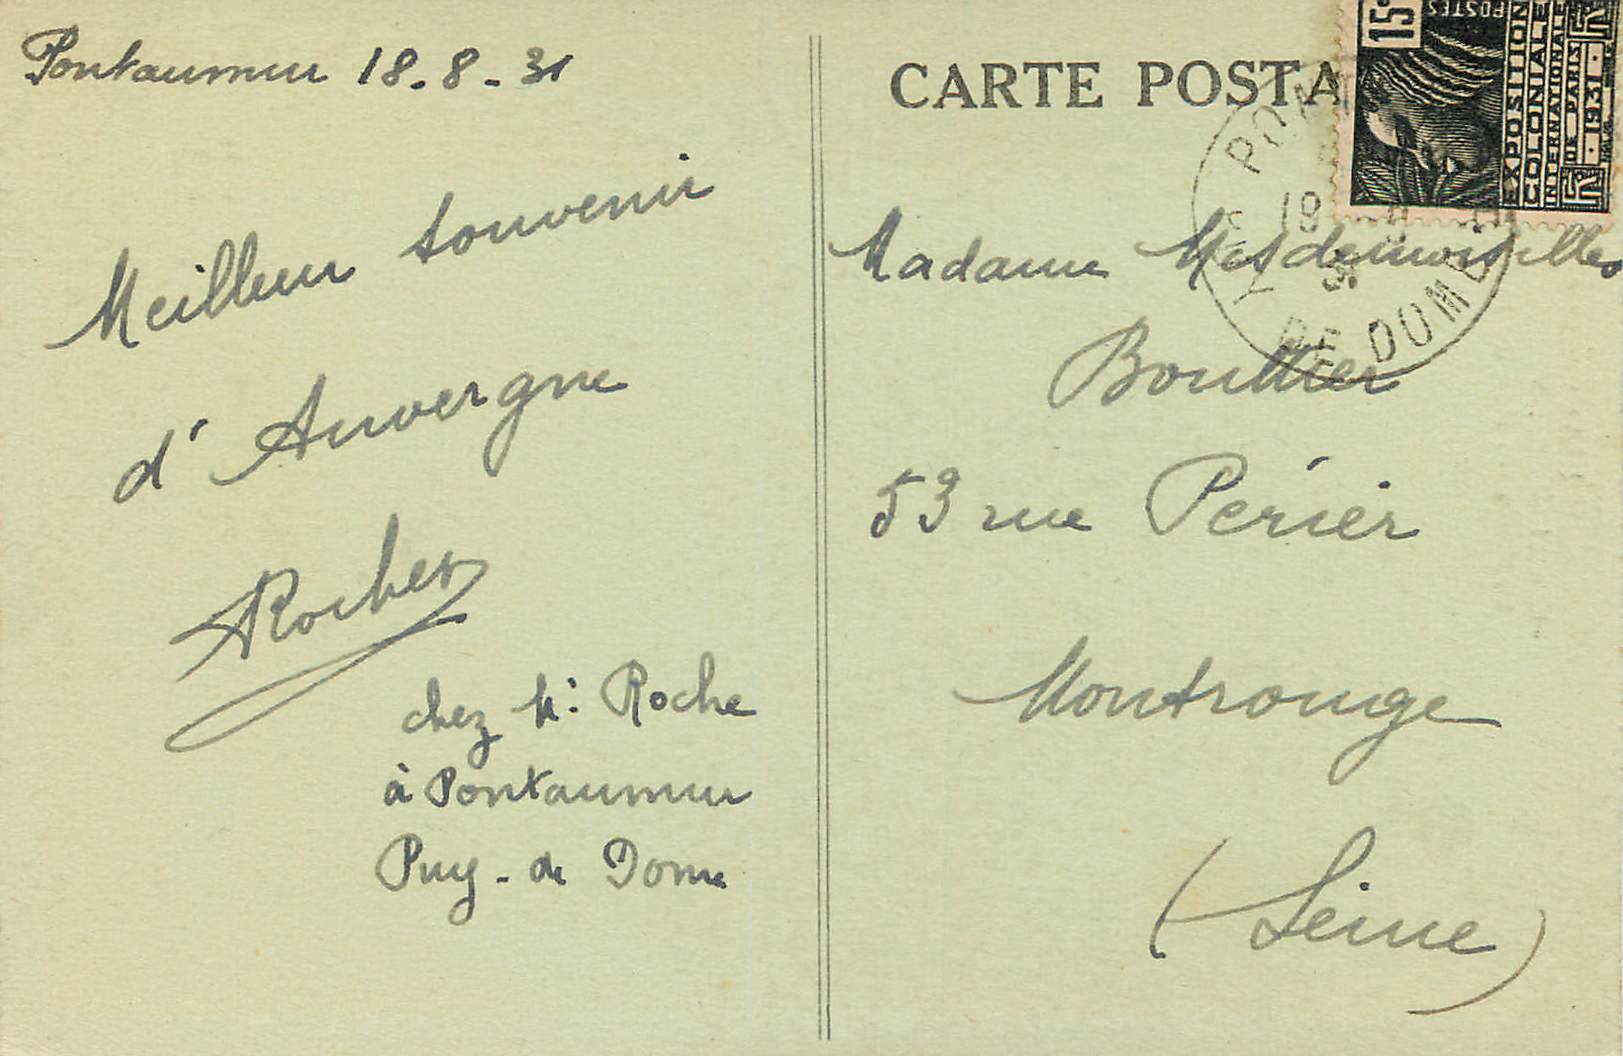 Pontaumur 18.8.31
Meilleur souvenir
d'Auvergne
Rocher
chez M. Roche
à Pontaumur
Puy-de Dome
CARTE POSTA
15c
POSTES
EXPOSITION
COLONIALE
INTERNATIONALE
DE PARIS
1931
DE DOME
Madame Mesdemoiselles
Bouttier
53 rue Périer
Montrouge
(Seine)